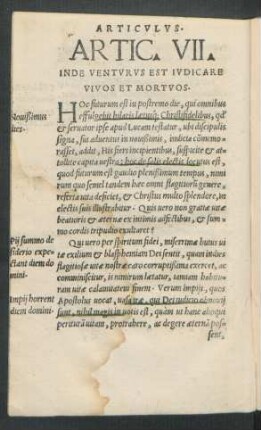 ARTICVLVS.
ARTIC. VII.
INDE VENTVRVS EST IVDICARE
VIVOS ET MORTVOS.
HOc futurum est in postremo die, qui omnibus
Nouissimus
dies.
effulgebit hilaris lætusq́; Christifidelibus, qd̃
& seruator ipse apud Lucam testatur, ubi discipulis
signa, sui aduentus in nouissimis, indicta cõmemo-
rasset, addit, His fieri incipientibus, suspicite & at-
tollite capita uestra: hoc de solis electis locutus est,
quod futurum est gaudio plenissimum tempus, nimi
rum quo semel tandem hæc omni flagitiorũ genere,
referta uita deficiet, & Christus multo splendore, in
electis suis illustrabitur. Qui uero non gratia uitæ
beatioris & æternæ ex intimis affectibus, & sum-
mo cordis tripudio exultaret?
Pij summo de
siderio expe-
ctant diem do
mini.
Qui uero per spiritum fidei, miserrimæ huius ui
tæ exilium & blasphemiam Dei sentit, quam in dies
flagitiosæ uitæ nostræ caro corruptissima exercet, ac
comminiscitur, is nimirum lætatur, tantam habitu-
ram uitæ calamitatem finem. Verum impijs, quos
Impij horrent
diem domini.
Apostolus uocat, uasa iræ, quæ Dei iudicio obnoxij
sunt, nihil magis in uotis est, quàm ut hanc aliquot
perituram uitam, protrahere, ac degere æternã pos-
sent,